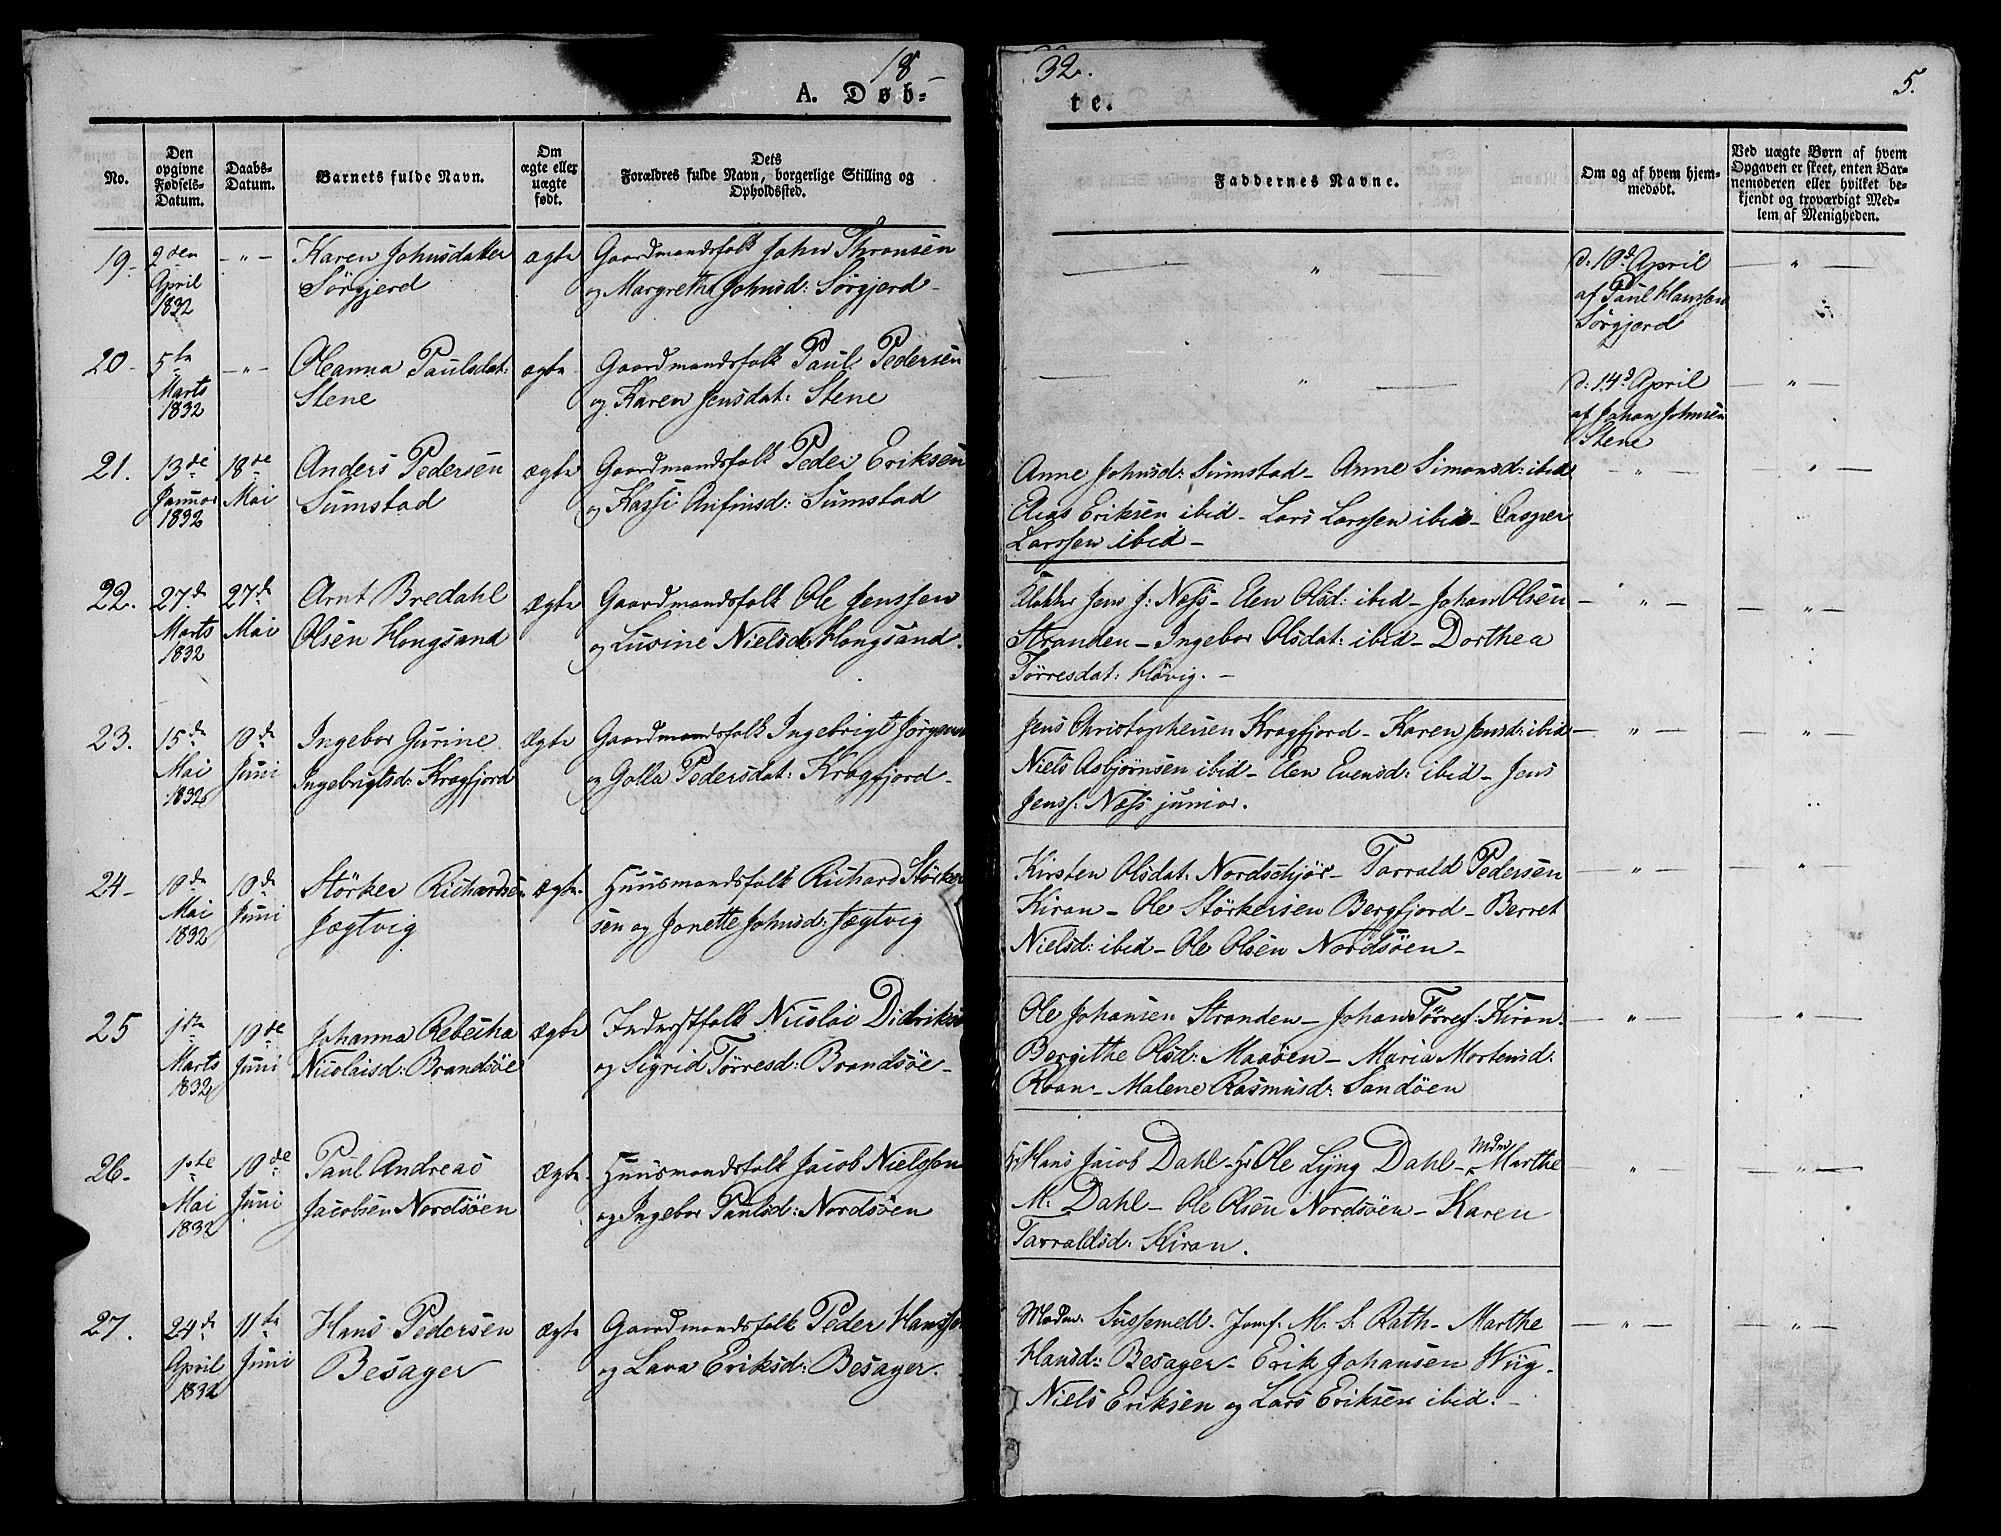 18
32.
5.
A. Døb-
te.
No.
Den opgivne Fødsels-Datum.
Daabs-Datum.
Barnets fulde Navn.
Om ægte eller uægte født.
Dets Forældres fulde Navn, borgerlige Stilling og Opholdssted.
Faddernes Navne.
Om og af hvem hjem-medøbt.
Ved uægte Børn af hvem Opgaven er skeet, enten Bar-nemoderen eller hvilket be-kjendt og troværdigt Med-lem af Menigheden.
19. 2den April 1832 - " -
Karen Johnsdatter
Sørgjerd
ægte
Gaardmandsfolk John Thronsen
og Margretha Johnsd: Sørgjerd -
— " —
d: 10d April
af Paul Hanssen
Sørgjerd
— " —
20 - 5te Marts 1832 - " -
Oleanna Paulsdat:
Stene
ægte
Gaardmandsfolk Paul Pedersen
og Karen Jensdat: Stene
— " —
d: 14d April
af Johan Johnsen
Stene
— " —
21. 13de Januar 1832 18de Mai
Anders Pedersen
Sumstad
ægte
Gaardmandsfolk Peder Eriksen
og Kassi Anfinsd: Sumstad
Anne Johnsd: Sumstad - Anne Simonsd: ibid
Elias Eriksen ibid - Lars Larssen ibid - Casper
Larssen ibid -
- " -
— " —
22. 27d. Marts 1832 27d Mai
Arnt Bredahl
Olsen Hongsand
Ægte
Gaardmandsfolk Ole Jenssen
og Lusine Nielsd: Hongsand.
Klokker Jens J: Næss - Elen Olsd: ibid - Johan Olsen
Stranden - Ingebor Olsdat: ibid - Dorthea
Tørresdat: Høvig. -
— " —
— " —
23. 15de Mai 1832 10de Juni
Ingebor Gurine
Ingebrigtsd: Kragfjord
Ægte
Gaardmandsfolk Ingebrigt Jørgensen
og Golla Pedersdat: Kragfjord -
Jens Christophersen Kragfjord - Karen Jensd: ibid
Niels Asbjørnsen ibid - Elen Evensd: ibid - Jens
Jenss: Næss junior.
— " —
— " —
24 - 10de Mai 1832 10de Juni
Størker Richardsen
Jægtvig
Ægte.
Huusmandsfolk Richard Størker
sen og Jonette Johnsd: Jægtvig
Kirsten Olsdat: Nordschjør - Tarrald Pedersen
Kiran - Ole Størkersen Bergfjord - Berret
Nielsd: ibid - Ole Olsen Nordsøen -
— " —
— " —
25 1ste Marts 1832 10de Juni
Johanna Rebecha
Nicolaisd: Brandsøe
Ægte
Inderstfolk Nicolai Didriksen
og Sigrid Tørresd: Brandsøe -
Ole Johansen Stranden - Johan Tørres: Kiran.
Bergithe Olsd: Maaøen - Maria Mortensd:
Roan - Malene Rasmusd: Sandøen
— " —
— " —
26 - 1ste Mai 1832 10de Juni
Paul Andreas
Jacobsen Nordsøen
Ægte.
Huusmandsfolk Jacob Nielssen
og Ingebor Paulsd: Nordsøen
Hr Hans Jacob Dahl - Hr Ole Lyng Dahl - Mdm Marthe
M: Dahl - Ole Olsen Nordsøen - Karen
Tarraldsd: Kiran.
"
— " —
27. 24de April 1832 11te Juni
Hans Pedersen
Besager
Ægte
Gaardmandsfolk Peder Hanssen
og Lava Eriksd: Besager.
Madm: Sussemell - Jomf: M. S. Rath - Marthe
Hansd: Besager - Erik Johansen Wiig -
Niels Eriksen og Lars Eriksen ibid: -
— " —
— " —